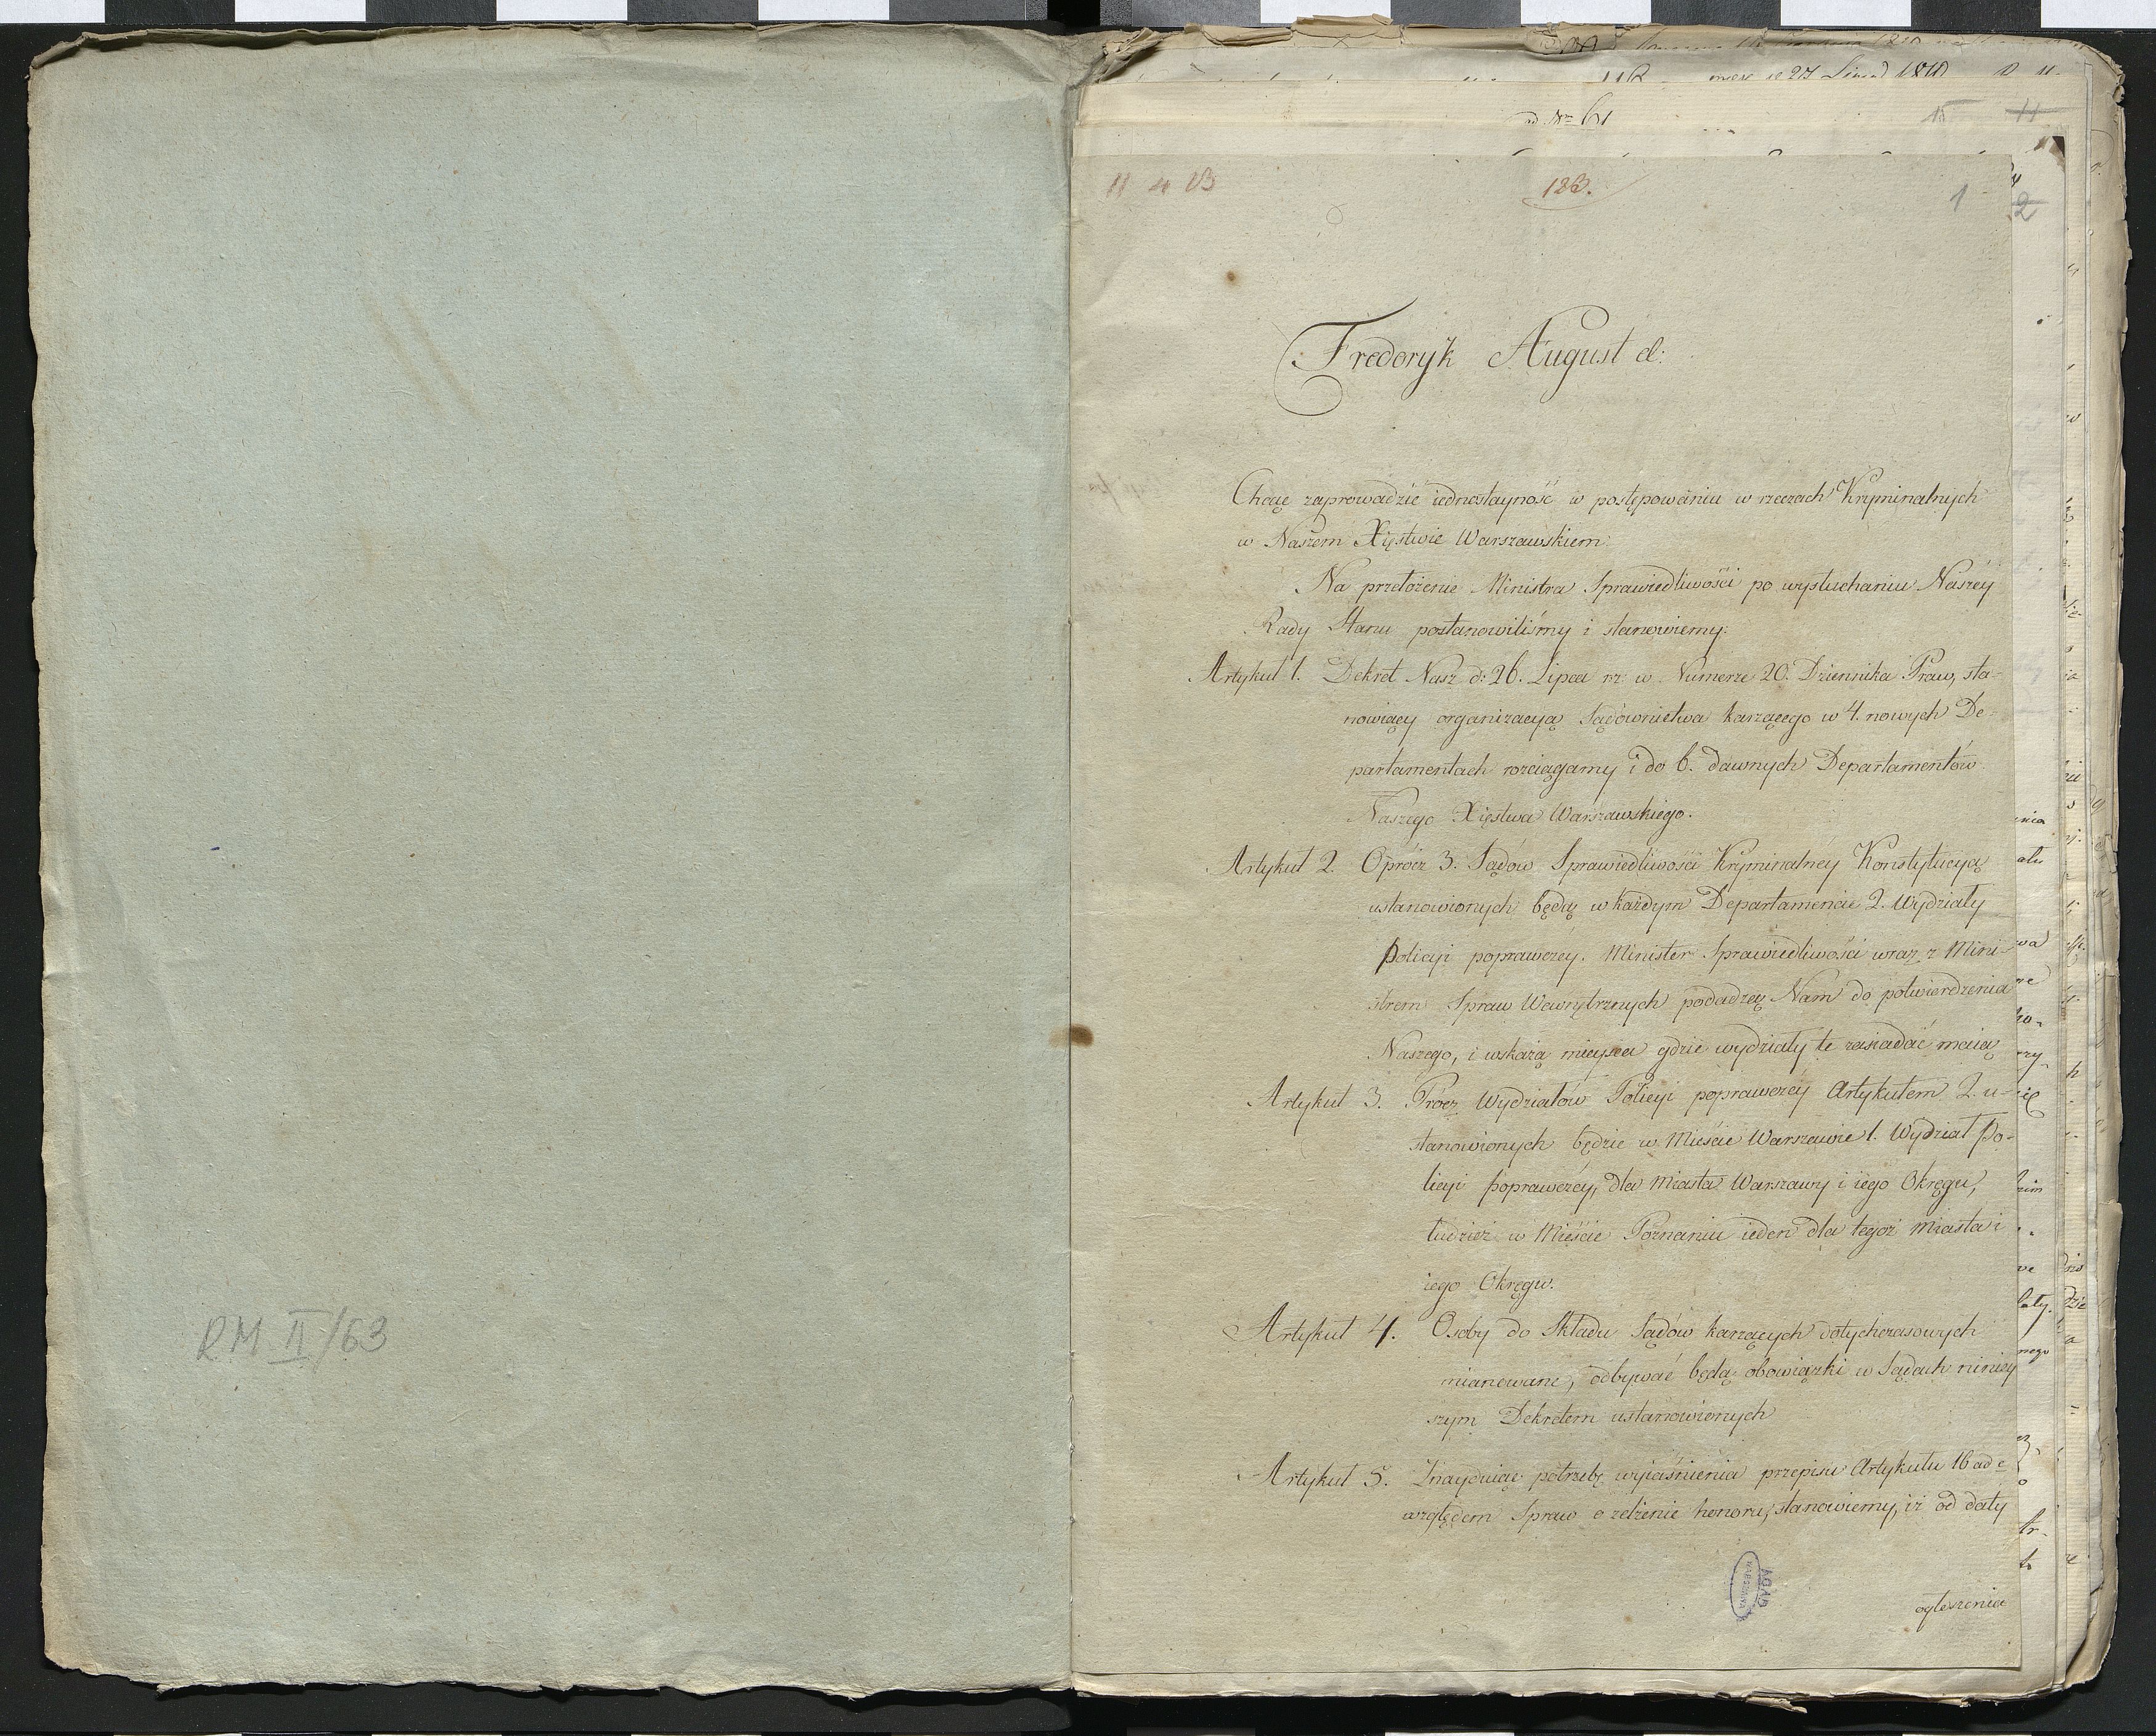 RM II/63
ad Nro 61
15 11
11 4 13
123.
1
2
Fredoryk August el:
Chcąc zaprowadzić iednostayność w postępowaniu w rzeczach Kryminalnych
w Naszem Xięstwie Warszawskiem:
Na przełożenie Ministra Sprawiedliwości po wysłuchaniu Naszéy
Rady Stanu postanowiliśmy i stanowiemy:
Artykuł 1. Dekret Nasz d: 26. Lipca rz: w Numerze 20. Dziennika Praw, sta-
nowiący organizacyą Sądownictwa karzącego w 4. nowych De-
partamentach rozciągamy i do 6. dawnych Departamentów
Naszego Xięstwa Warszawskiego.
Artykuł 2. Oprócz 3. Sądów Sprawiedliwości Kryminalnéy Konstytucyą
ustanowionych będą w każdym Departamencie 2. Wydziały
Policyi poprawczéy. Minister Sprawiedliwości wraz z Mini-
strem Spraw Wewnętrznych podadzą Nam do potwierdzenia
Naszego, i wskażą mieysca gdzie wydziały te zasiadać maią
Artykuł 3. Procz Wydziałów Policyi poprawczéy Artykułem 2. u-
stanowionych będzie w Mieście Warszawie 1. Wydział Po-
licyi poprawczéy, dla Miasta Warszawy i iego Okręgu,
tudzież w Mieście Poznaniu ieden dla tegoż Miasta i
iego Okręgu.
Artykuł 4. Osoby do Składu Sądów karzących dotychczasowych
mianowane, odbywać będą obowiązki w Sądach niniey
szym Dekretem ustanowionych
Artykuł 5. Znayduiąc potrzebę wyiaśnienia przepisu Artykułu 16 ad c
względem Spraw o zelżenie honoru, stanowiemy, iż od daty
AGAD
WARSZAWA
ogłoszenia